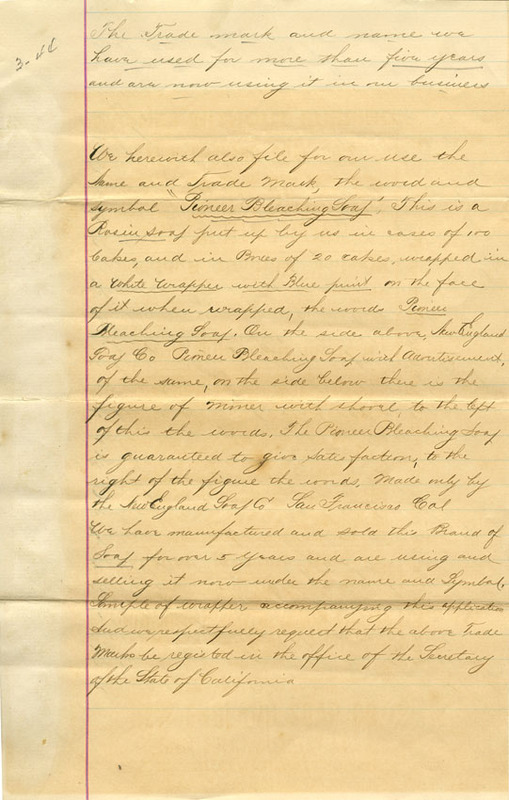 The Trade mark and name we
have used for more than five years
and are now using it in our business
We herewith also file for our use the
Name and Trade Mark, the word and
symbol "Pioneer Bleaching Soap". This is a
Rosin Soap put up by us in cases of 100
Cakes, and in Boxes of 20 cakes, wrapped in
a White Wrapper with Blue print on the face
of it when wrapped, the words Pioneer
Bleaching Soap. On the side above, New England
Soap Co Pioneer Bleaching Soap with Advertisement,
of the same, on the side below there is the
figure of Miner with shovel, to the left
of this the words, The Pioneer Bleaching Soap
is guaranteed to give satisfaction, to the
right of the figure the words, Made only by
the New England Soap Co San Francisco Cal
We have manufactured and sold this Brand of
Soap for over 5 Years and are using and
selling it now under the name and Symbol.
Sample of wrapper accompanying this application
And we respectfully request that the above Trade
Marks be registed in the office of the Secretary
of the State of California